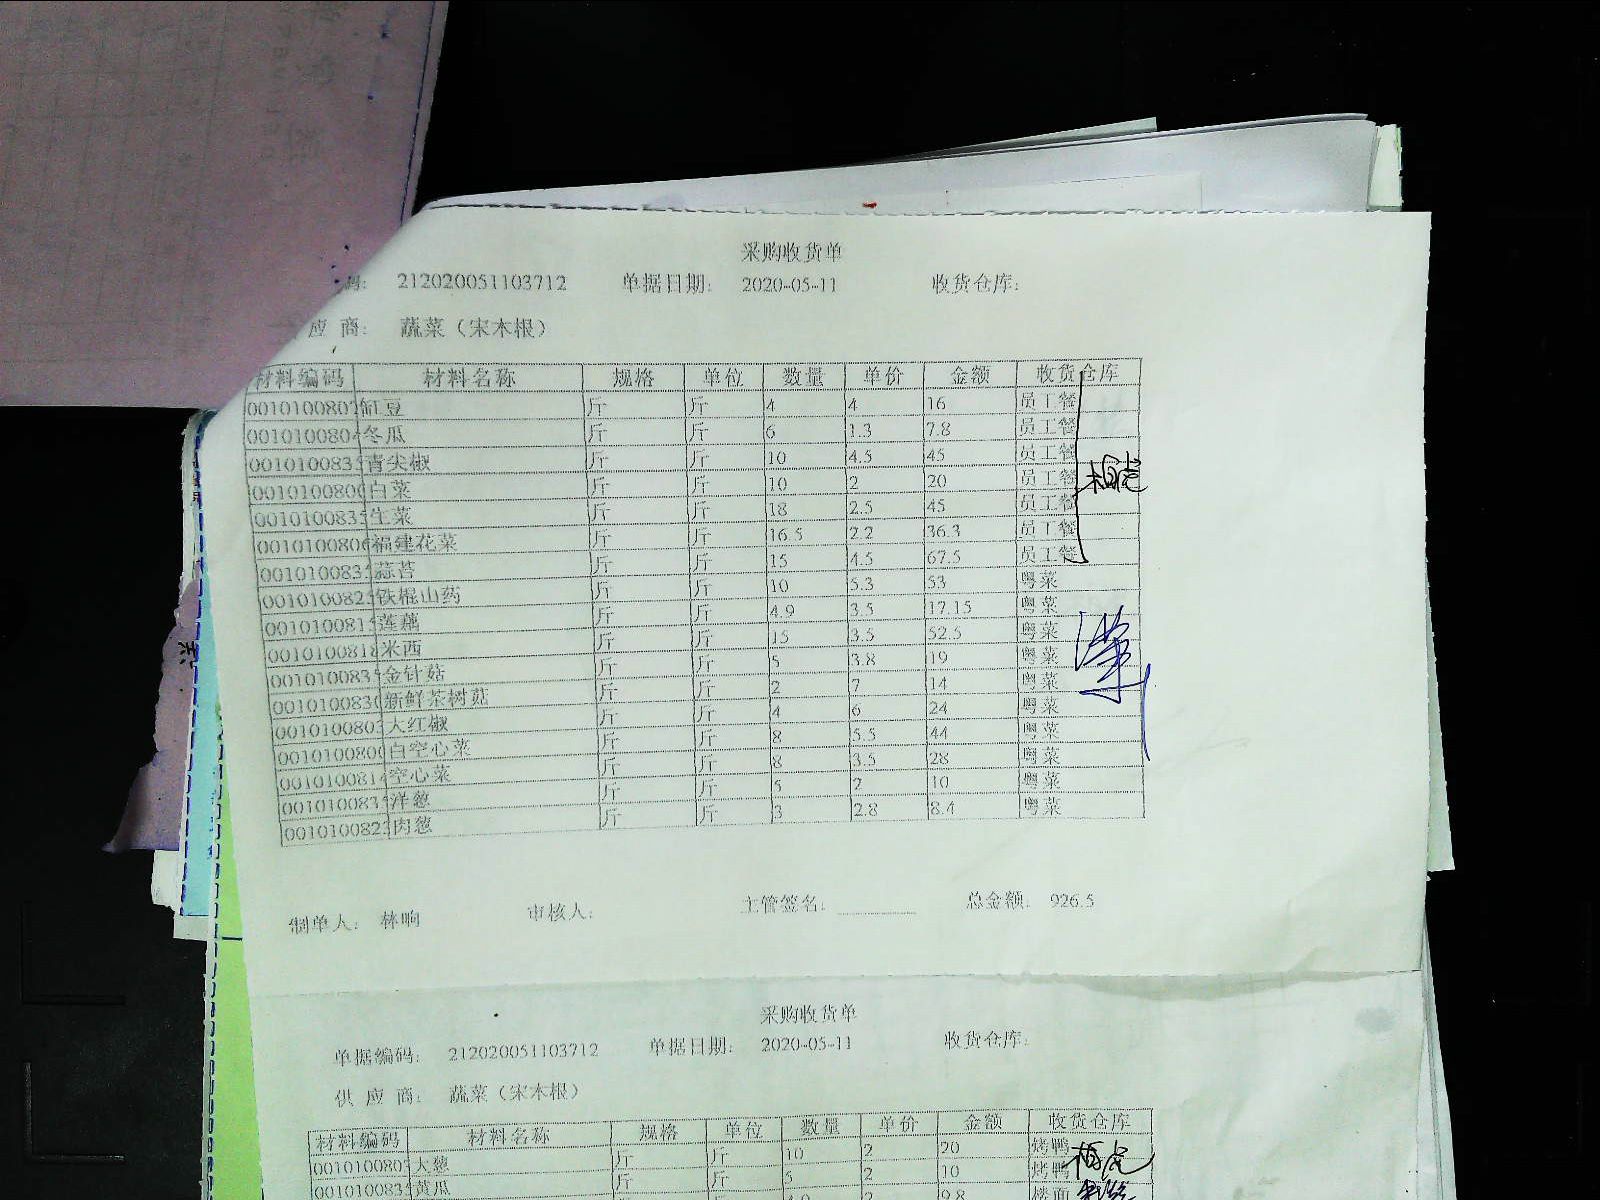 采购收货单
码: 212020051103712 单据日期: 2020-05-11 收货仓库:
应 商: 蔬菜（宋木根）
材料编码 材料名称 规格 单位 数量 单价 金额 收货仓库
0010100802 豇豆 斤 斤 4 4 16 员工餐
0010100804 冬瓜 斤 斤 6 1.3 7.8 员工餐
0010100835 青尖椒 斤 斤 10 4.5 45 员工餐
0010100800 白菜 斤 斤 10 2 20 员工餐
0010100835 生菜 斤 斤 18 2.5 45 员工餐
0010100806 福建花菜 斤 斤 16.5 2.2 36.3 员工餐
0010100835 蒜苔 斤 斤 15 4.5 67.5 员工餐
0010100825 铁棍山药 斤 斤 10 5.3 53 粤菜
0010100815 莲藕 斤 斤 4.9 3.5 17.15 粤菜
0010100818 米西 斤 斤 15 3.5 52.5 粤菜
0010100835 金针菇 斤 斤 5 3.8 19 粤菜
0010100830 新鲜茶树菇 斤 斤 2 7 14 粤菜
0010100803 大红椒 斤 斤 4 6 24 粤菜
0010100800 白空心菜 斤 斤 8 5.5 44 粤菜
0010100814 空心菜 斤 斤 8 3.5 28 粤菜
0010100835 洋葱 斤 斤 5 2 10 粤菜
0010100823 肉葱 斤 斤 3 2.8 8.4 粤菜
制单人: 林响 审核人: 主管签名: 总金额: 926.5
采购收货单
单据编码: 212020051103712 单据日期: 2020-05-11 收货仓库:
供 应 商: 蔬菜（宋木根）
材料编码 材料名称 规格 单位 数量 单价 金额 收货仓库
0010100805 大葱 斤 斤 10 2 20 烤鸭
0010100834 黄瓜 斤 斤 5 2 10 烤鸭
斤 斤 4.9 2 9.8 楼面